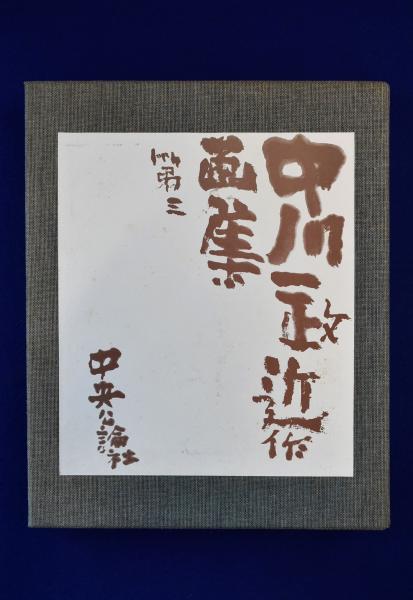 中川一政近作
画集
第三
中央公論社